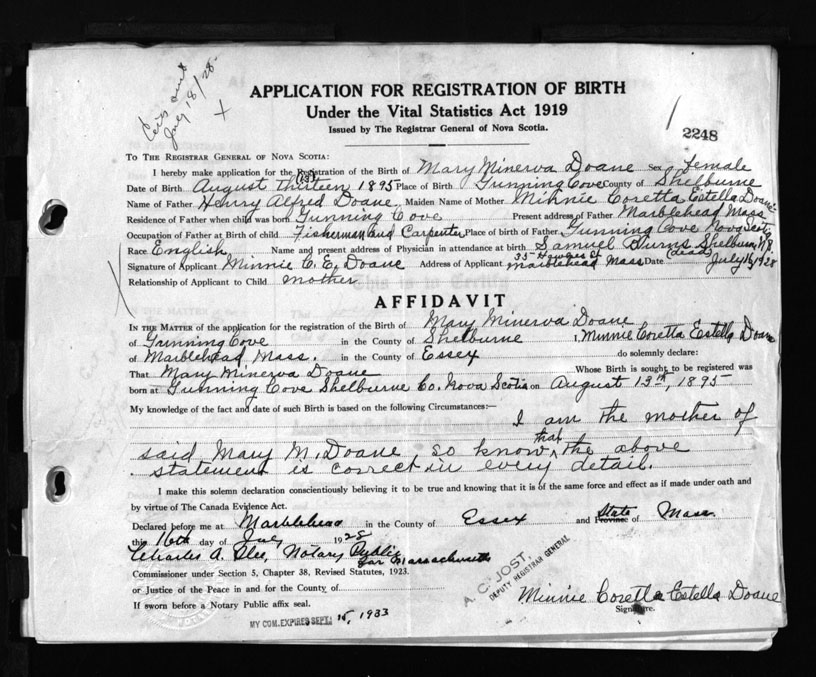 Cert. sent
July 18/28
APPLICATION FOR REGISTRATION OF BIRTH
Under the Vital Statistics Act 1919
Issued by The Registrar General of Nova Scotia.
2248
TO THE REGISTRAR GENERAL OF NOVA SCOTIA:
I hereby make application for the Registration of the Birth of Mary Minerva Doane Sex female
Date of Birth August thirteen (13) 1895 Place of Birth Gunning Cove County of Shelburne
Name of Father Henry Alfred Doane Maiden Name of Mother Minnie Coretta Estella Doane
Residence of Father when child was born Gunning Cove Present address of Father Marblehead Mass
Occupation of Father at Birth of child Fisherman and Carpenter Place of birth of Father Gunning Cove Nova Scotia
Race English Name and present address of Physician in attendance at birth Samuel Burns Shelburne, N.S. (dead)
Signature of Applicant Minnie C. E. Doane Address of Applicant 35 St Marblehead Mass Date July 16, 1928
Relationship of Applicant to Child mother
AFFIDAVIT
IN THE MATTER of the application for the registration of the Birth of Mary Minerva Doane
of Gunning Cove in the County of Shelburne I, Minnie Coretta Estella Doane
of Marblehead Mass. in the County of Essex do solemnly declare:
That Mary Minerva Doane Whose Birth is sought to be registered was
born at Gunning Cove Shelburne Co. Nova Scotia on August 13th, 1895
My knowledge of the fact and date of such Birth is based on the following Circumstances:— I am the mother of
said Mary M. Doane, so know that the above
statement is correct in every detail.
I make this solemn declaration conscientiously believing it to be true and knowing that it is of the same force and effect as if made under oath and
by virtue of The Canada Evidence Act.
Declared before me at Marblehead in the County of Essex and State Province of Mass.
this 16th day of July 1928
Charles A. Slee, Notary Public
for Massachusetts
Commissioner under Section 5, Chapter 38, Revised Statutes, 1923.
or Justice of the Peace in and for the County of
If sworn before a Notary Public affix seal.
MY COM. EXPIRES SEPT. 15, 1933
A. C. JOST,
DEPUTY REGISTRAR GENERAL
Minnie Coretta Estella Doane
Signature.